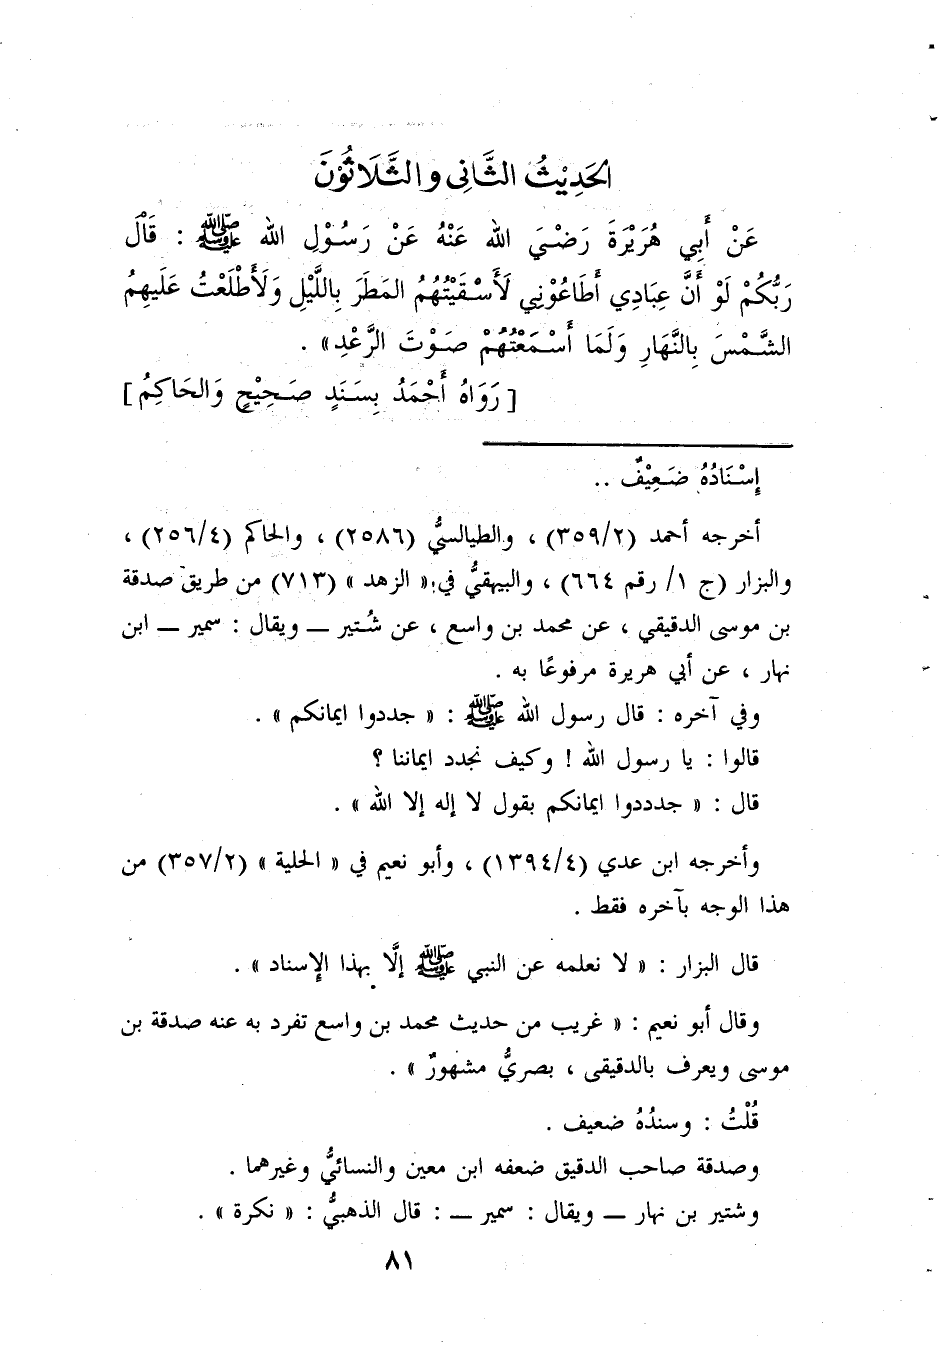 الحَدِيْثُ الثَّانِي والثَّلَاثُوْنَ
عَنْ أَبِي هُرَيْرَةَ رَضْيَ الله عَنْهُ عَنْ رَسُوْلِ الله ﷺ : قَالَ
رَبُّكُمْ لَوْ أَنَّ عِبَادِي أَطَاعُوْنِي لَأَسْقَيْتُهُمُ المَطَرَ بِاللَّيْلِ وَلَأَطْلَعْتُ عَلَيهِمُ
الشَّمْسَ بِالنَّهَارِ وَلَمَا أَسْمَعْتُهُمْ صَوْتَ الرَّعْدِ» .
[ رَوَاهُ أَحْمَدُ بِسَنَدٍ صَحِيْحٍ وَالحَاكِمُ ]
إِسْنَادُهُ ضَعِيْفٌ ..
أخرجه أحمد (٣٥٩/٢) ، والطيالسيُّ (٢٥٨٦) ، والحاكم (٢٥٦/٤) ،
والبزار (ج ١/ رقم ٦٦٤) ، والبيهقيُّ في « الزهد » (٧١٣) من طريق صدقة
بن موسى الدقيقي ، عن محمد بن واسع ، عن شُتير ــ ويقال : سمير ــ ابن
نهار ، عن أبي هريرة مرفوعًا به .
وفي آخره : قال رسول الله ﷺ : « جددوا ايمانكم » .
قالوا : يا رسول الله ! وكيف نجدد ايماننا ؟
قال : « جدددوا ايمانكم بقول لا إله إلا الله » .
وأخرجه ابن عدي (١٣٩٤/٤) ، وأبو نعيم في « الحلية » (٣٥٧/٢) من
هذا الوجه بآخره فقط .
قال البزار : « لا نعلمه عن النبي ﷺ إلَّا بهذا الإسناد » .
وقال أبو نعيم : « غريب من حديث محمد بن واسع تفرد به عنه صدقة بن
موسى ويعرف بالدقيقى ، بصريٌّ مشهورٌ » .
قُلْتُ : وسندُهُ ضعيف .
وصدقة صاحب الدقيق ضعفه ابن معين والنسائيُّ وغيرهما .
وشتير بن نهار ــ ويقال : سمير ــ : قال الذهبيُّ : « نكرة » .
٨١